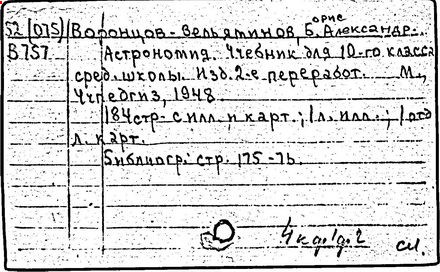 52(075) Воронцов-Вельяминов, Борис Александр.
В757 Астрономия. Учебник для 10-го класса
сред. школы. Изд. 2-е переработ. М.,
Учпедгиз, 1948
184 стр. с илл. и карт.; 1 л. илл.; 1 отд.
л. карт.
Библиогр: стр. 175-76.
см.